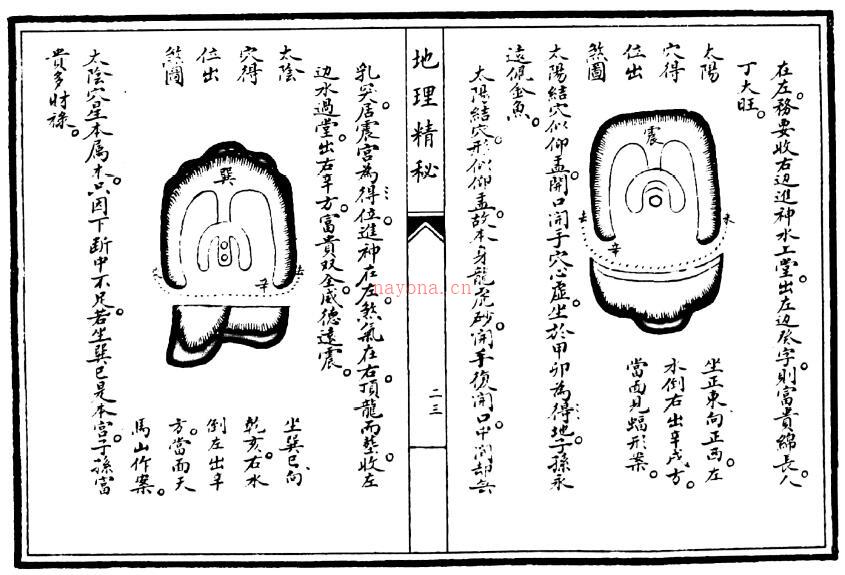 在左務要收右边進神水上堂出左边癸字則富貴綿長人
丁大旺
太陽
穴得
位出
煞圖
震
去
來
辛
坐正東向正西左
水倒右出辛戌方
當面見蝠形案
太陽結穴似仰盂開口開手穴心虛坐於甲卯為得地子孫永
遠佩金魚
太陽結穴形似仰盂故本身龍虎砂開手復開口中間却無
地理精秘
二三
乳突居震宫為得位進神在左煞氣在右頂龍而塟收左
边水過堂出右辛方富貴双全威德遠震
太陰
穴得
位出
煞圖
巽
來
去
辛
坐巽巳向
乾亥右水
倒左出辛
方當面天
馬山作案
太陰穴星本属木只因下斷中不足若坐巽巳是本宫子孫富
貴多財祿
nayona.cn